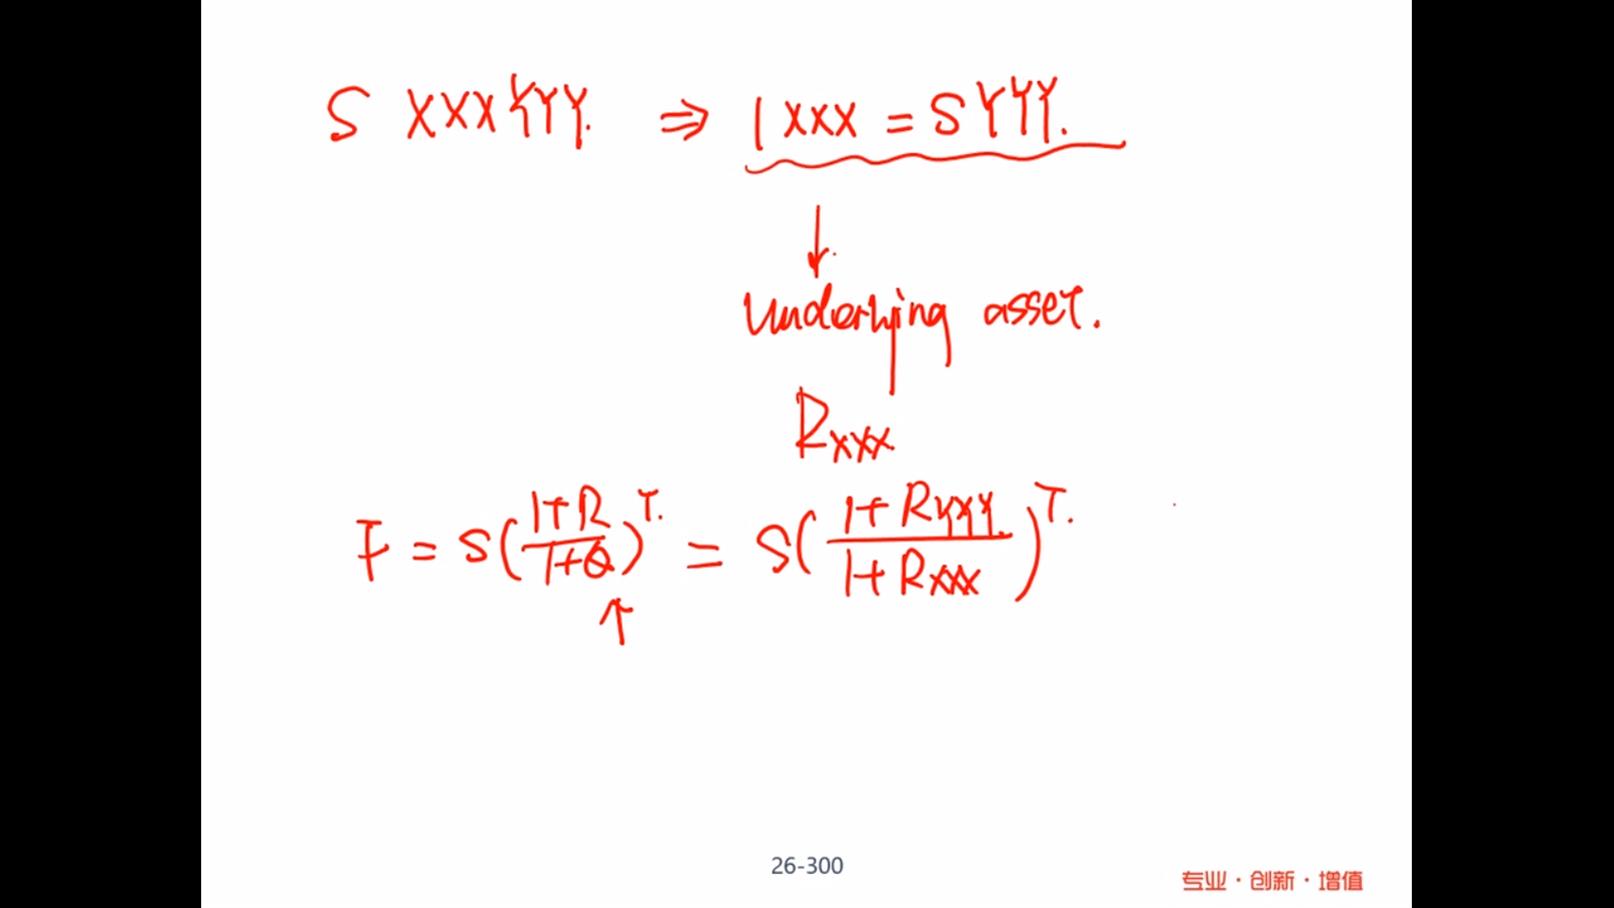 S XXXYYY. ⇒ 1 XXX = S YYY.
↓
underlying asset.
R_XXX
F = S((1+R)/(1+Q))^T. = S((1+R_YYY.)/(1+R_XXX))^T.
↑
26-300
专业·创新·增值